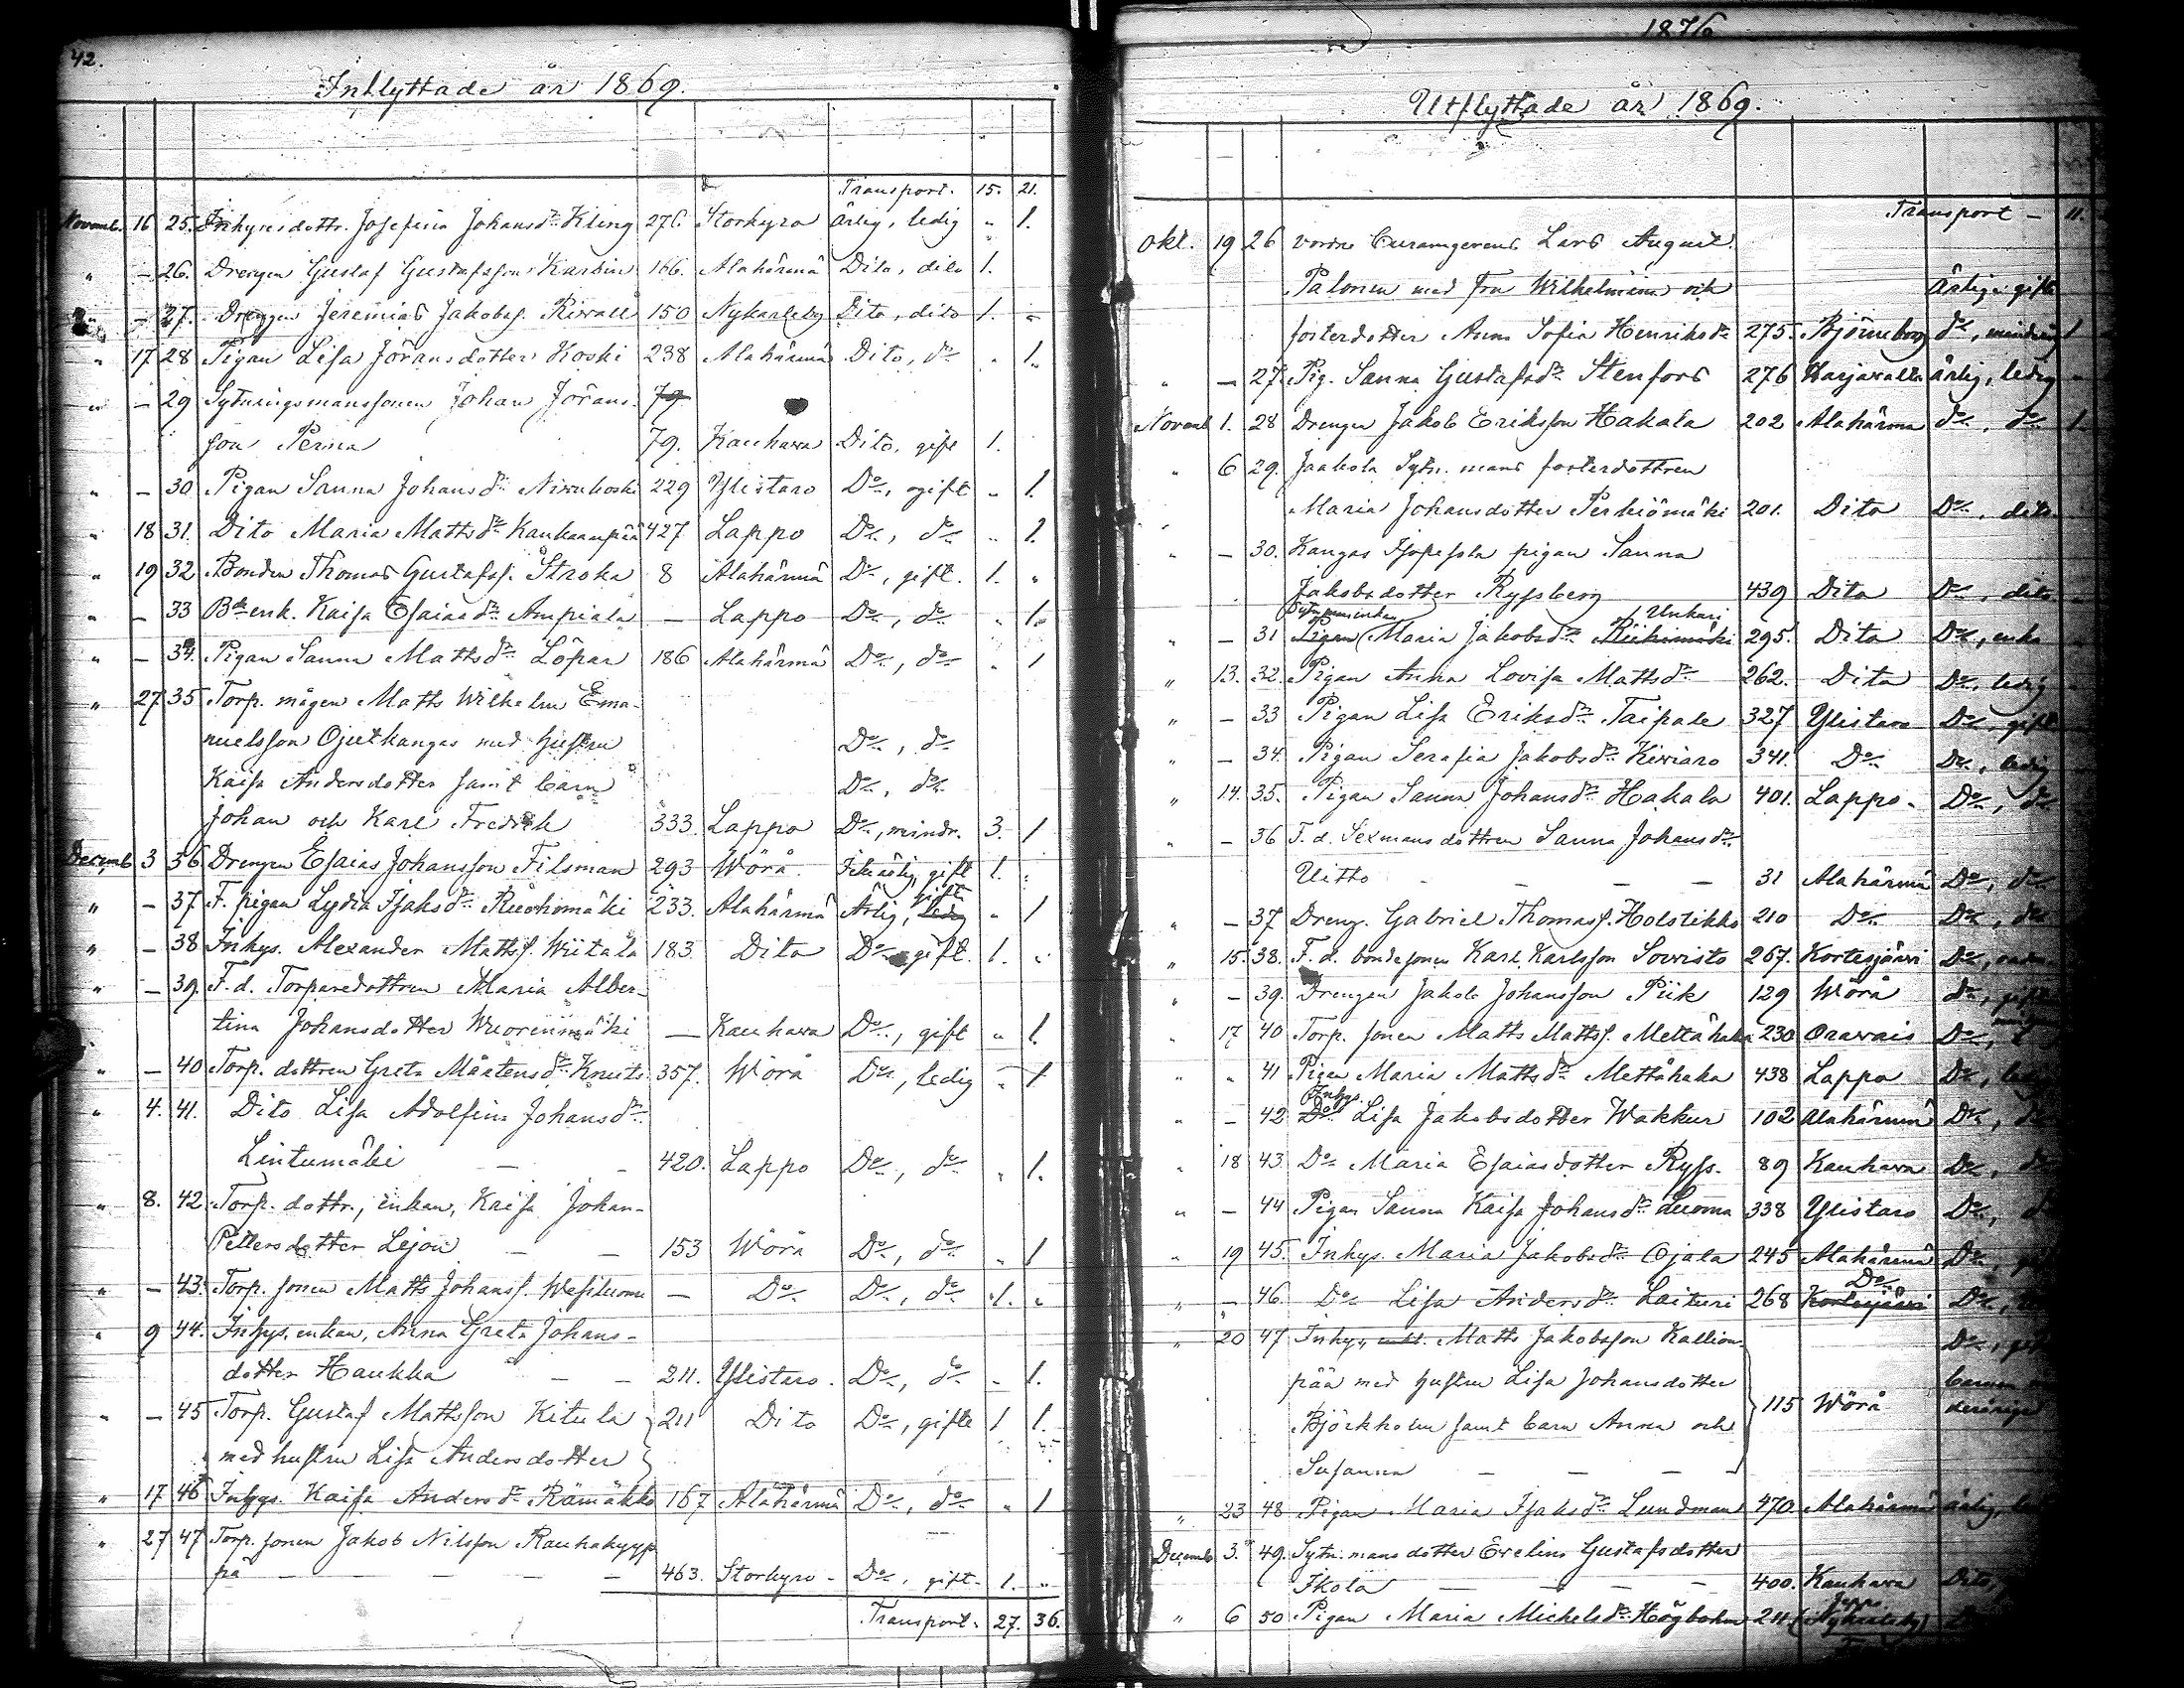 42.
Inflyttade år 1869.
Transport. 15. 21.
Novemb. 16 25. Inhysesdottr. Josefina Johansdr Kling 276. Storkyro Ärlig, ledig " 1.
" — 26. Drengen Gustaf Gustafsson Karbin 166. Alahärmä Dito, dito 1.
— 27. Drengen Jeremias Jakobss. Riwall 150 Nykarleby Dito, dito 1. "
" 17 28 Pigan Lisa Jöransdotter Koski 238 Alahärmä Dito, do " 1.
" — 29 Sytningsmanssonen Johan Jörans- 79
son Perna 79. Kauhava Dito, gift 1.
" — 30 Pigan Sanna Johansdr Niwukoski 229 Ylistaro Do, ogift " 1.
" 18 31. Dito Maria Mattsdr Kankaanpää 427 Lappo Do, do " 1.
" 19 32 Bonden Thomas Gustafss. Ströka 8 Alahärmä Do, gift. 1. "
" — 33 Bdeenk. Kaisa Esaiasdr Ampiala — Lappo Do, do " 1.
" — 34. Pigan Sanna Mattsdr Löpar 186 Alahärmä Do, do " 1
" 27 35 Torp. mågen Matts Wilhelm Ema-
nuelsson Ojutkangas med hustru Do, do
Kaisa Andersdotter samt barn Do, do
Johan och Karl Fredrik 333. Lappo Do, mindr. 3. 1
Decemb 3 36 Drengen Esaias Johansson Filsman 293 Wörå. Ickeärlig, gift 1. "
" — 37 F. pigan Lydia Isaksdr Ruohomäki 233. Alahärmä Ärlig, ledig gift " 1
" — 38 Inhys. Alexander Mattss. Wiitala 183 Dito Do gift. 1. "
" — 39. F. d. Torparedottren Maria Alber-
tina Johansdotter Wuorinmäki — Kauhava Do, gift " 1.
" — 40 Torp. dottren Greta Mårtensdr Knuts 357. Wörå Do, ledig " 1
" 4. 41. Dito Lisa Adolfina Johansdr
Lintumäki — — 420. Lappo Do, do " 1.
" 8. 42 Torp. dottr., enkan, Kaisa Johan-
Pettersdotter Lejon — — 153 Wörå Do, do " 1
" — 43. Torp. sonen Matts Johanss. Wesiluoma — Do Do, do 1. "
" 9 44. Inhys. enkan, Anna Greta Johans-
dotter Haukka — — 211. Ylistaro. Do, do " 1.
" — 45 Torp. Gustaf Mattsson Kitula 211 Dito Do, gifte 1 1.
med hustru Lisa Andersdotter
" 17 46 Inhys. Kaisa Andersdr Rämäkkö 167 Alahärmä Do, do " 1
" 27 47 Torp. sonen Jakob Nilsson Rauhakyyp
pä — — — — 463. Storkyro — Do, gift. 1. "
Transport. 27. 36.
1876
Utflyttade år 1869.
Transport — 11.
Okt. 19 26 vordne Lars August
Palonen med fru Wilhelmina och Ärliga gifte
fosterdotter Anna Sofia Henriksdr 275. Björneborg do, mindreårig 1
" — 27. Pig. Sanna Gustafsdr Stenfors 276 Harjavalla ärlig, ledig
Novemb 1. 28 Drengen Jakob Eriksson Hakala 202 Alahärmä do, do 1.
" 6 29. Jaakola Sytn. mans fosterdottren
Maria Johansdotter Perkiömäki 201. Dito Do, dito
" — 30. Kangas pigan Sanna
Jakobsdotter Ryssberg 439 Dito Do, dito
Unkuri
" — 31 Pigan Maria Jakobsdr Riihimäki 295. Dito Do, enka
" 13. 32. Pigan Anna Lovisa Mattsdr 262. Dito Do, ledig
" — 33 Pigan Lisa Eriksdr Taipale 327 Ylistaro Do, gift
" — 34. Pigan Serafia Jakobsdr Kiviaro 341. Do Do, ledig
" 14. 35. Pigan Sanna Johansdr Hakala 401. Lappo. Do, do
" — 36 F. d. Sexmansdottren Sanna Johansdr
Uitto — — — 31 Alahärmä Do, do
" — 37 Dreng. Gabriel Thomass. Holstikko 210 Do Do, do
" 15. 38. F. d. bondesonen Karl Karlsson Sovisto 267. Kortesjärvi Do,
" — 39. Drengen Jakob Johansson Piik 129 Wörå do, gift
" 17 40 Torp. sonen Matts Mattss. Mettähaka 230 Oravais Do,
" " 41 Pigan Maria Mattsdr Mettähaka 438 Lappo Do,
Inhys.
" — 42 Do Lisa Jakobsdotter Wakkur 102 Alahärmä Do,
" 18 43 Do Maria Esaiasdotter Ryss. 89 Kauhava Do, do
" — 44 Pigan Sanna Kaisa Johansdr Luoma 338 Ylistaro Do,
" 19 45. Inhys. Maria Jakobsdr Ojala 245 Alahärmä Do,
Do
" — 46. Do Lisa Andersdr Laituri 268 Kortesjärvi Do,
" 20 47 Inhys. Matts Jakobsson Kallion- Do,
pää med hustru Lisa Johansdotter barnen
Björkholm samt barn Anna och 115 Wörå
Susanna — — —
" 23 48 Pigan Maria Isaksdr Lundman 470. Alahärmä ärlig,
Decemb 3. 49. Sytn. mans dotter Evelina Gustafsdotter
Ikola — — — — 400. Kauhava Dito,
Jeppo
" 6 50 Pigan Maria Michelsdr Högbohm 211 (Nykarleby)